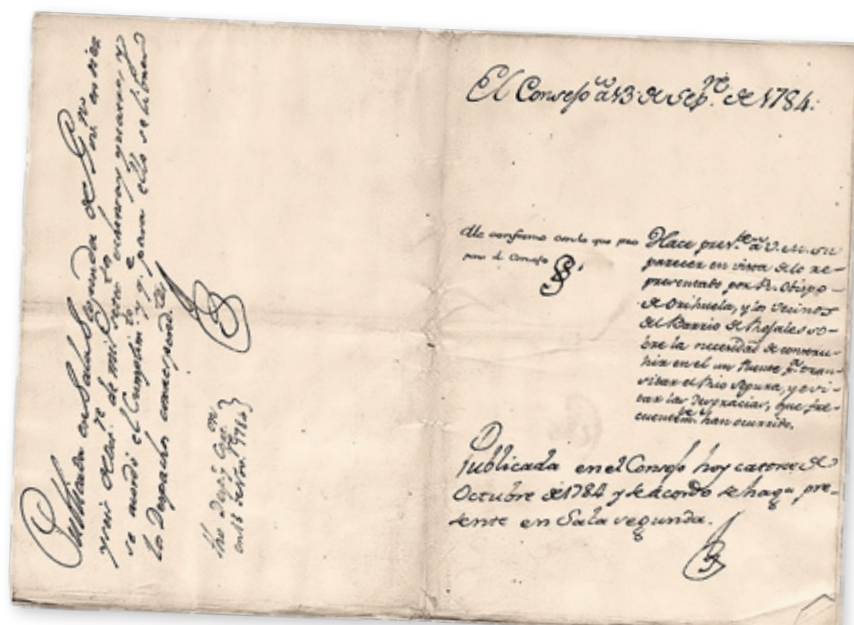 El Consejo a 13 de Sep.re de 1784.
Me conformo con lo que pro
pone el Consejo
Hace pres.te a V. M. su
parecer en vista de lo re-
presentado por R. Obispo
de Orihuela, y los Vecinos
del Barrio de Rojales so-
bre la necesidad de constru-
hir en el un Puente p.a tran-
sitar el Rio Segura, y evi-
tar las desgracias, que fre-
cuentem.te han ocurrido.
Publicada en el Consejo hoy catorce de
Octubre de 1784 y se acordo se haga pre-
sente en Sala segunda.
Publicada en Sala Segunda de Gov.no
de mil
se acordó el Cumplim.to y q.e para ello se libren
los Despachos correspond.tes